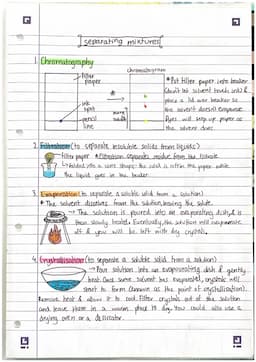 [separating mixtures]
1. Chromatography
filter paper
ink spot
pencil line
Chromatogram
* Put filter paper into beaker
(don't let solvent touch ink) &
place a lid over beaker so
the solvent doesn't evaporate.
Dyes will seep up paper as
the solvent does.
2. Filtration (to separate insoluble solids from liquids)
filter paper * Filtration separates residue from the
folded into a cone shape: the solid is left in the paper while
the liquid goes in the beaker
3. Evaporation (to separate a soluble solid from a solution)
* The solvent
from the solution, leaving the solute.
The solution is poured into an evaporating dish, & is
then slowly heated. Eventually, the solution will evaporate
& you will be left with dry crystals.
4. Crystallisation (to separate a soluble solid from a solution)
Pour solution into an evaporating dish & gently
heat. Once some solvent has evaporated, crystals will
start to form (known as the point of crystallisation).
Remove heat & allow it to cool. Filter crystals out of the solution
and leave them in a warm place to dry. You could also use a
drying oven or a